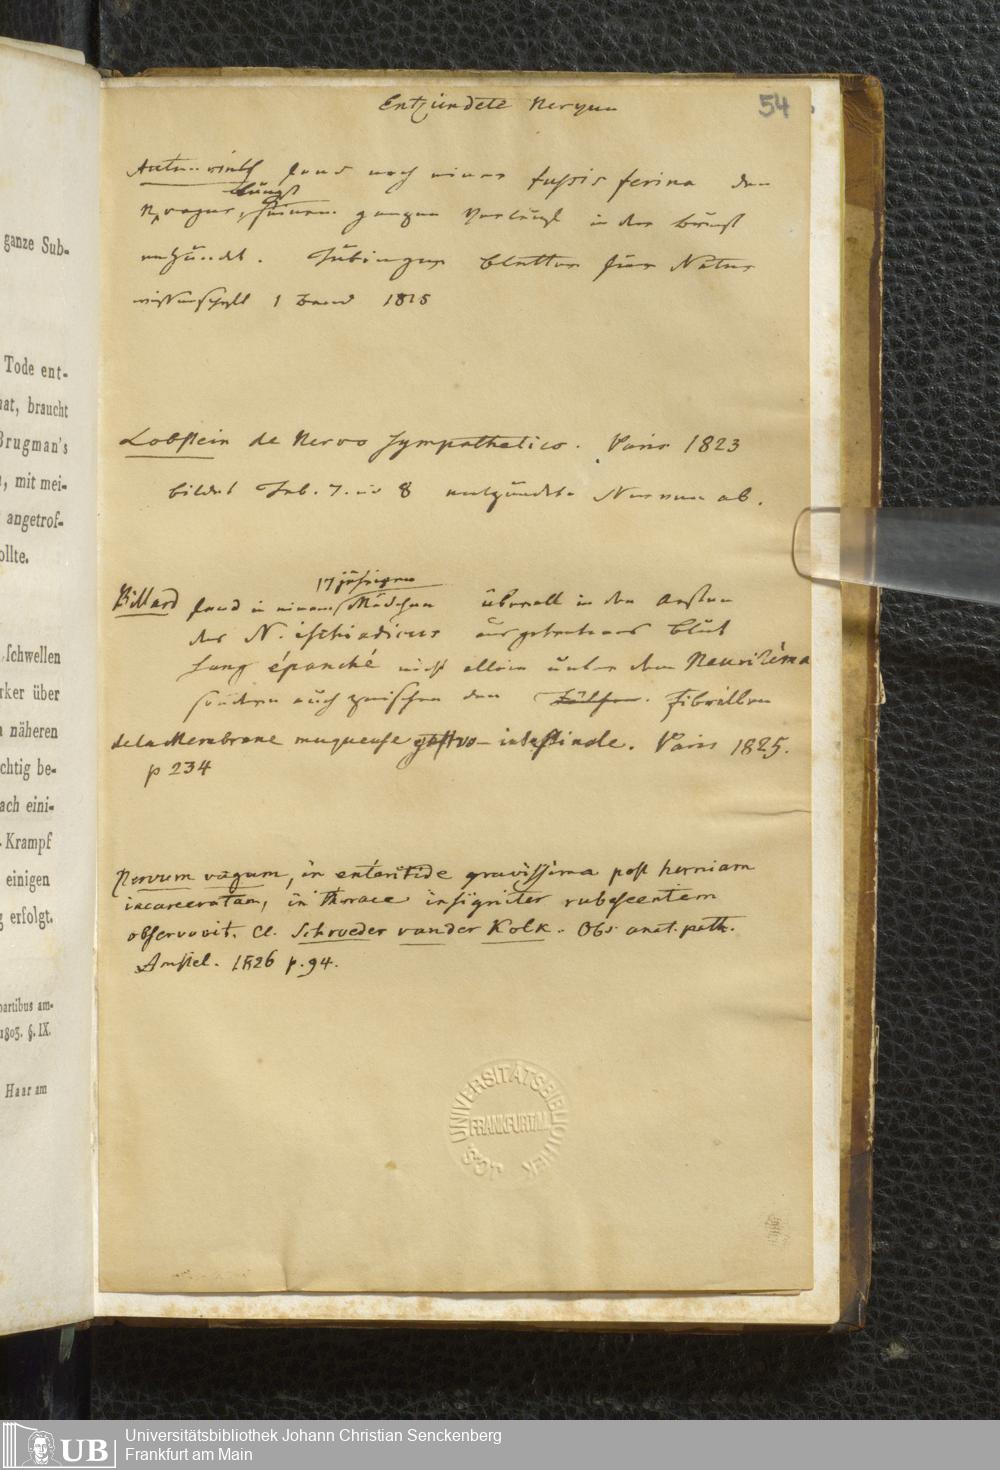 ganze Sub-
Tode ent-
hat, braucht
Brugman's
, mit mei-
angetrof-
ollte.
schwellen
rker über
näheren
chtig be-
ach eini-
Krampf
einigen
erfolgt.
partibus am-
1803. §. IX.
Haar am
54
Entzündete Nerven
fand nach einer tussis ferina den
längst
N. vagus, seinem ganzen Verlaufe in der Brust
entzündet. Tübinger Blätter für Natur
wissenschaft 1 Band 1815
Lobstein de Nervo Sympathetico. Paris 1823
bildet Tab. 7. u 8 entzündete Nerven ab.
17 jährigen
Billard fand in einem Mädchen überall in den Aesten
des N. ischiadicus ausgetretenes Blut
sang épanché nicht allein unter dem Neurilema
sondern auch zwischen den Fibrillen
de la Membrane muqueuse gastro-intestinale. Paris 1825.
p 234
Nervum vagum, in enteritide gravissima post herniam
incarceratam, in thorace insigniter rubescentem
observavit. Cl. Schroeder van der Kolk. Obs. anat. path.
Amstel. 1826 p. 94.
UNIVERSITÄTSBIBLIOTHEK
FRANKFURT A.M.
UB
Universitätsbibliothek Johann Christian Senckenberg
Frankfurt am Main